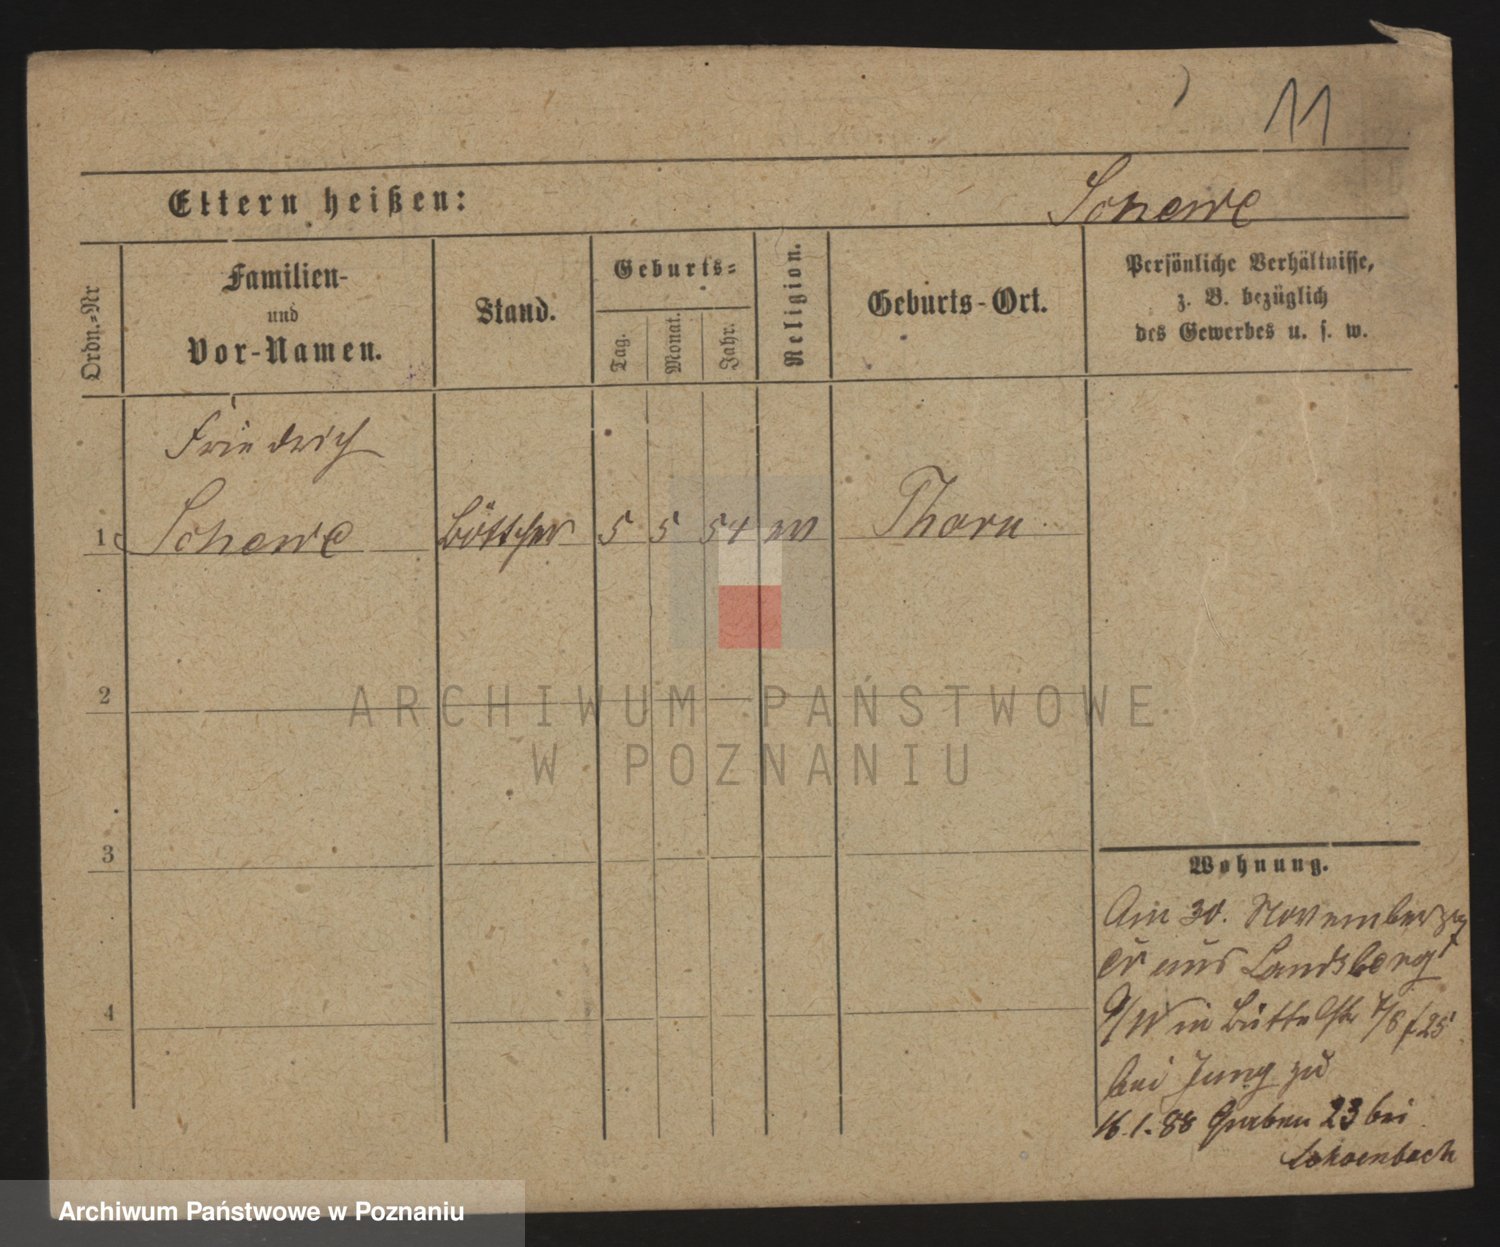 11
Eltern heißen:
Schewe
Ordn.-Nr
Familien-
und
Vor-Namen.
Stand.
Geburts-
Tag.
Monat.
Jahr.
Religion.
Geburts-Ort.
Persönliche Verhältnisse,
z. B. bezüglich
des Gewerbes u. s. w.
Friedrich
1 Schewe Böttcher 5 5 54 Thorn
2
ARCHIWUM PAŃSTWOWE
W POZNANIU
3
4
Wohnung.
Am 30. November
er aus Landsberg
a/W in Büttelstr 7/8
bei Jung zu
16.1.88 Graben 23 bei
Schoenbach
Archiwum Państwowe w Poznaniu